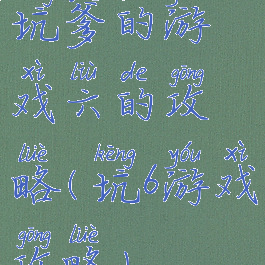 坑爹的游
xì liù de gōng
戏六的攻
lüè kēng yóu xì
略(坑6游戏
gōng lüè
攻略)